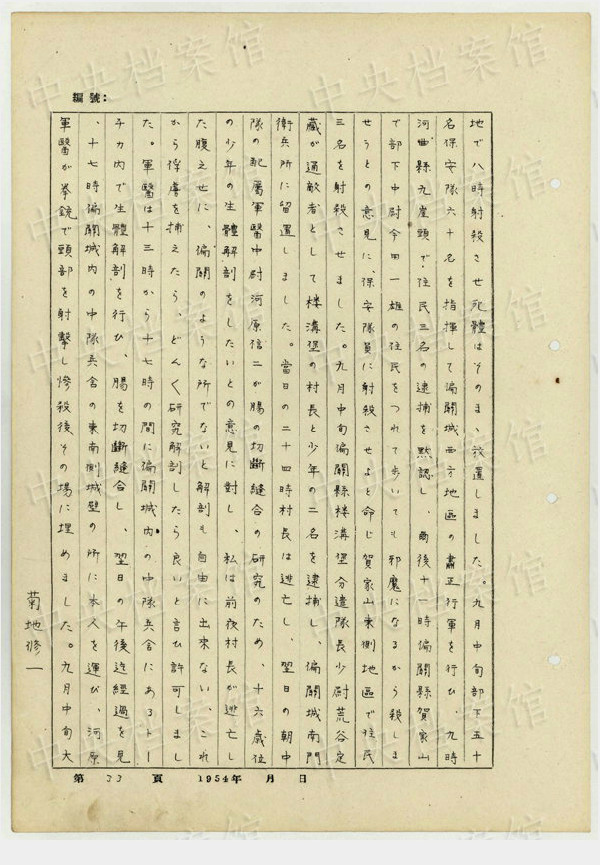 編號：
地で八時射殺させ死體はそのまゝ放置しました。九月中旬部下五十
名保安隊六十名を指揮して偏關城西方地區の肅正行軍を行ひ、九時
河曲縣九座頭で住民三名の逮捕を默認し、爾後十一時偏關縣賀家山
で部下中尉今田一雄の住民をつれて歩いても邪魔になるから殺しま
せうとの意見に、保安隊員に射殺させよと命じ賀家山東側地區で住民
三名を射殺させました。九月中旬偏關縣楼溝堡分遣隊長少尉荒谷定
藏が通敵者として楼溝堡の村長と少年の二名を逮捕し、偏關城南門
衛兵所に留置しました。當日の二十四時村長は逃亡し、翌日の朝中
隊の配屬軍醫中尉河原信二が腸の切斷縫合の研究のため、十六歳位
の少年の生體解剖をしたいとの意見に對し、私は前夜村長が逃亡し
た腹えせに、偏關のような所でないと解剖も自由に出來ない、これ
から俘虜を捕えたら、どんどん研究解剖したら良いと言ひ許可しまし
た。軍醫は十三時から十七時の間に偏關城内の中隊兵舎にあるトー
チカ内で生體解剖を行ひ、腸を切斷縫合し、翌日の午後迄經過を見
、十七時偏關城内の中隊兵舎の東南側城壁の所に本人を運び、河原
軍醫が拳銃で頭部を射擊し慘殺後その場に埋めました。九月中旬大
菊地修一
第 33 頁 1954年 月 日
中央档案馆